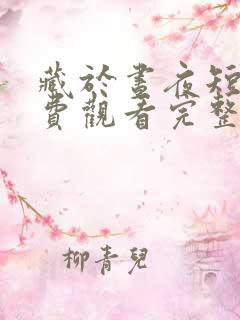 藏於晝夜短
費觀看完整
柳青兒